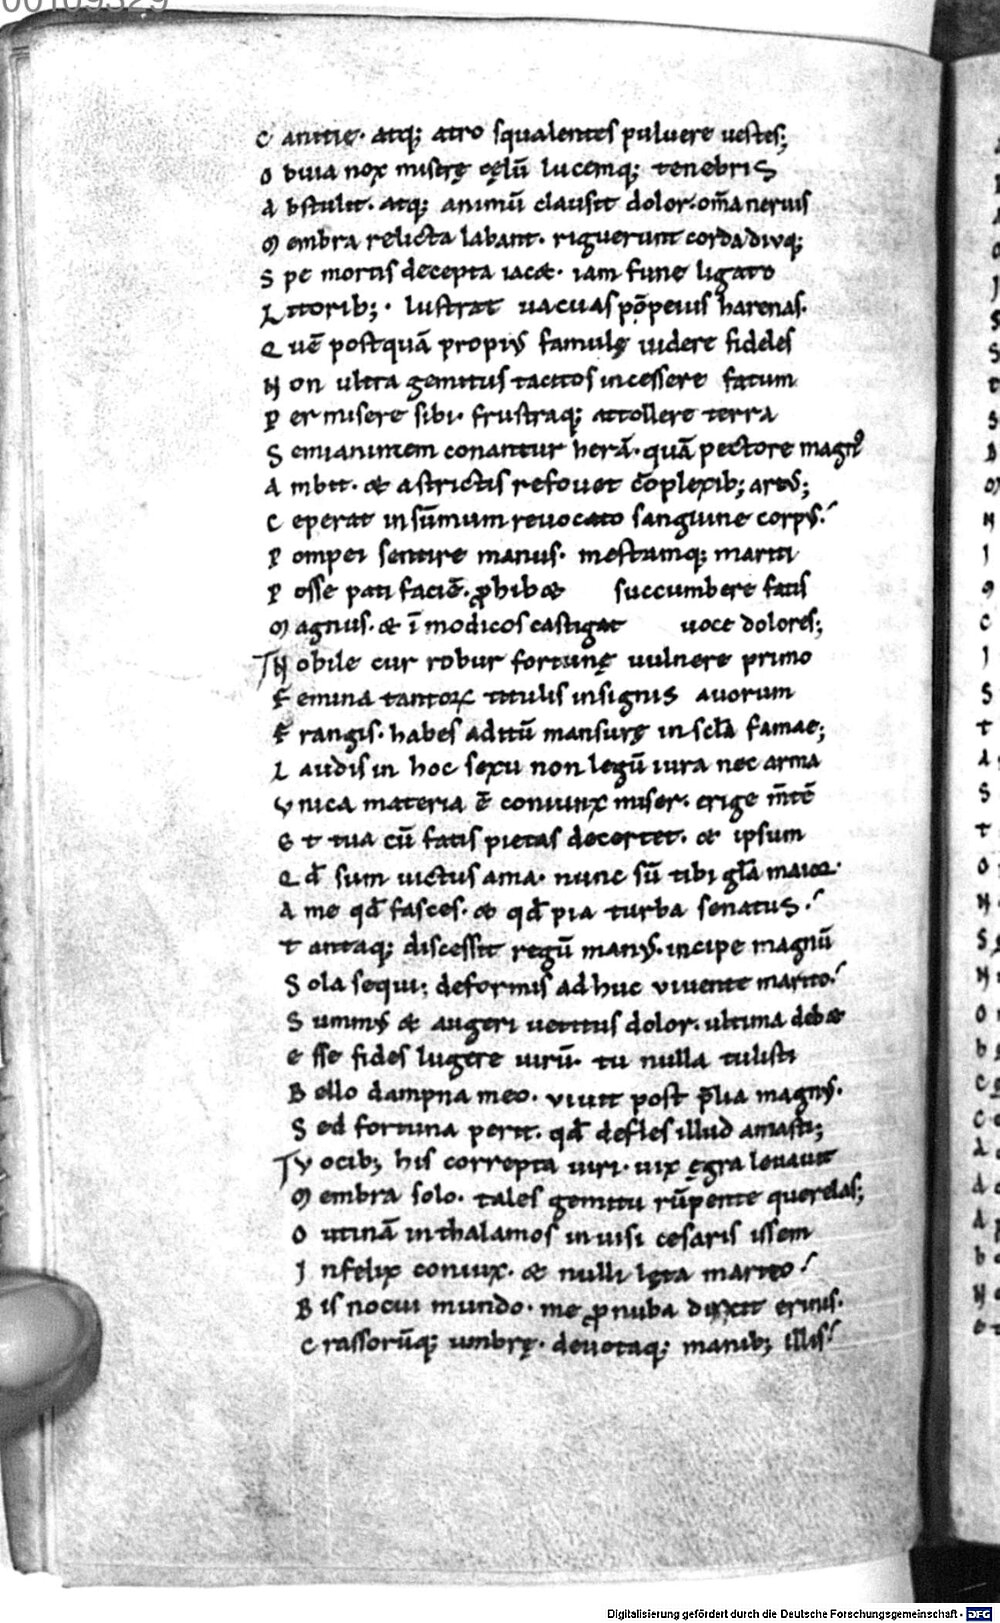 00109329
C anitię. atq; atro squalentes puluere uestes;
O buia nox miserę cęlū lucemq; tenebris
A bstulit. atq; animū clausit dolor. om̄a neruis
M embra relicta labant. riguerunt corda diuq;
S pe mortis decepta iacæ. iam fune ligato
L itorib;. lustrat uacuas pōpeius harenas.
Q uē postquā propiꝰ famulę uidere fideles
N on ultra gemitus tacitos incessere fatum
P ermisere sibi. frustraq; attollere terra
S emianimem conantur herā. quā pectore magnꝰ
A mbit. & astrictis refouet cōplexib; artꝰ;
C eperat in sūmum reuocato sanguine corpꝰ.
P ompei sentire manus. mestamq; mariti
P osse pati faciē. ꝓhibæ succumbere fatis
M agnus. & īmodicos castigat uoce dolores;
N obile cur robur fortunę uulnere primo
F emina tantoꝝ titulis insignis auorum
F rangis. habes aditū mansurę in scl̄a famae;
L audis in hoc sexu non legū iura nec arma
V nica materia ē coniunx miser. erige m̄tē
E t tua cū fatis pietas decertet. & ipsum
Q d̄ sum uictus ama. nunc sū tibi gl̄a maior.
A me qd̄ fasces. & qd̄ pia turba senatus.
T antaq; discessit regū manꝰ. incipe magnū
S ola sequi; deformis adhuc uiuente marito.
S ummꝰ & augeri uetitus dolor. ultima debæ
E sse fides lugere uirū. tu nulla tulisti
B ello dampna meo. uiuit post p̄lia magnꝰ.
S ed fortuna perit. qd̄ defles illud amasti;
V ocib; his correpta uiri. uix ęgra leuauit
M embra solo. tales gemitu rūpente querelas;
O utinā in thalamos inuisi cesaris issem
I nfelix coniux. & nulli lęta marito.
B is nocui mundo. me ꝓnuba duxit erinis.
C rassorūq; umbrę. deuotaq; manib; illis.
Digitalisierung gefördert durch die Deutsche Forschungsgemeinschaft - DFG